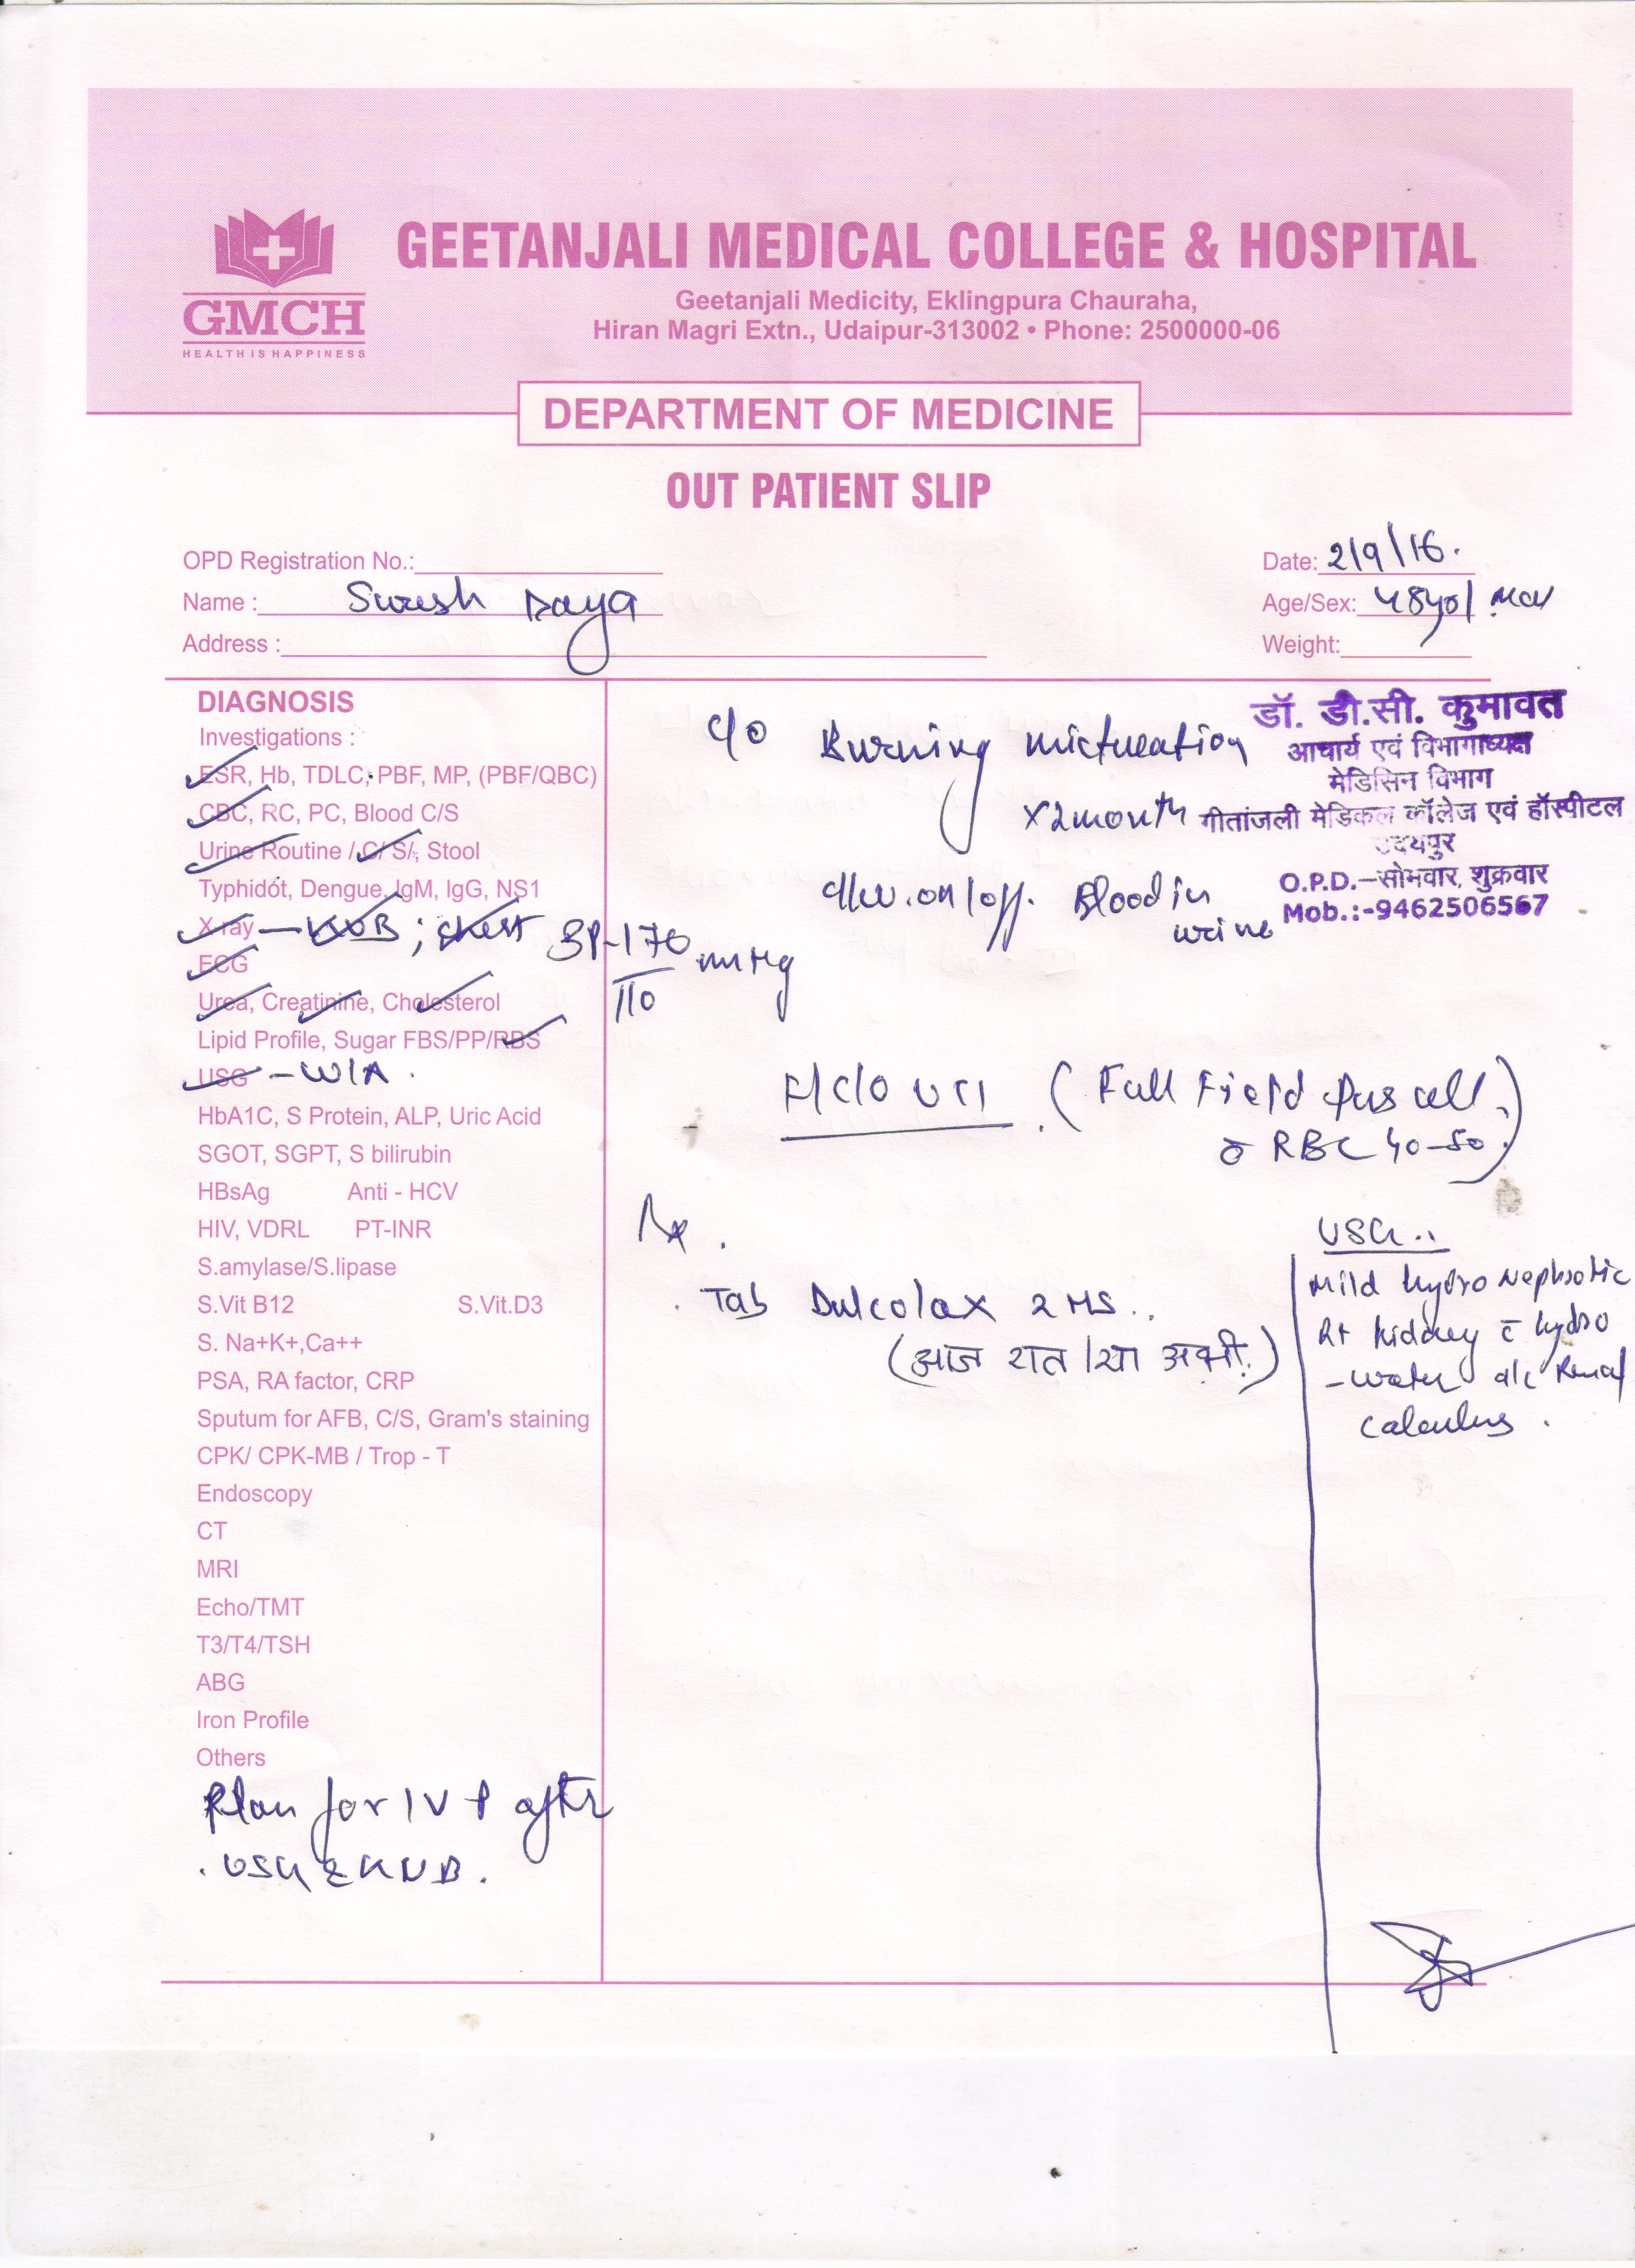 GMCH
HEALTH IS HAPPINESS
GEETANJALI MEDICAL COLLEGE & HOSPITAL
Geetanjali Medicity, Eklingpura Chauraha,
Hiran Magri Extn., Udaipur-313002 • Phone: 2500000-06
DEPARTMENT OF MEDICINE
OUT PATIENT SLIP
OPD Registration No.:
Date: 2/9/16.
Name : Suresh Daya
Age/Sex: 48yo/
Address :
Weight:
डॉ. डी.सी. कुमावत
आचार्य एवं विभागाध्यक्ष
मेडिसिन विभाग
गीतांजली मेडिकल कॉलेज एवं हॉस्पीटल
उदयपुर
O.P.D.–सोमवार, शुक्रवार
Mob.:-9462506567
DIAGNOSIS
Investigations :
ESR, Hb, TDLC, PBF, MP, (PBF/QBC)
CBC, RC, PC, Blood C/S
Urine Routine / C/ S/, Stool
Typhidot, Dengue, IgM, IgG, NS1
X-ray – KUB ; chest
ECG
Urea, Creatinine, Cholesterol
Lipid Profile, Sugar FBS/PP/RBS
USG – W/A .
HbA1C, S Protein, ALP, Uric Acid
SGOT, SGPT, S bilirubin
HBsAg Anti - HCV
HIV, VDRL PT-INR
S.amylase/S.lipase
S.Vit B12 S.Vit.D3
S. Na+K+,Ca++
PSA, RA factor, CRP
Sputum for AFB, C/S, Gram's staining
CPK/ CPK-MB / Trop - T
Endoscopy
CT
MRI
Echo/TMT
T3/T4/TSH
ABG
Iron Profile
Others
Plan for IVP after
. USG & KUB .
C/O Burning micturation
x2month
on/off. Blood in
urine
BP-170 mmHg
110
(Full Field Pus cell,
c̄ RBC 40-50.)
Rx .
. Tab Dulcolax 2 HS ..
(आज रात /या अभी.)
USG ..
Mild hydro Nephrotic
Rt kidney c̄ hydro
-ureter d/c Renal
calculus .